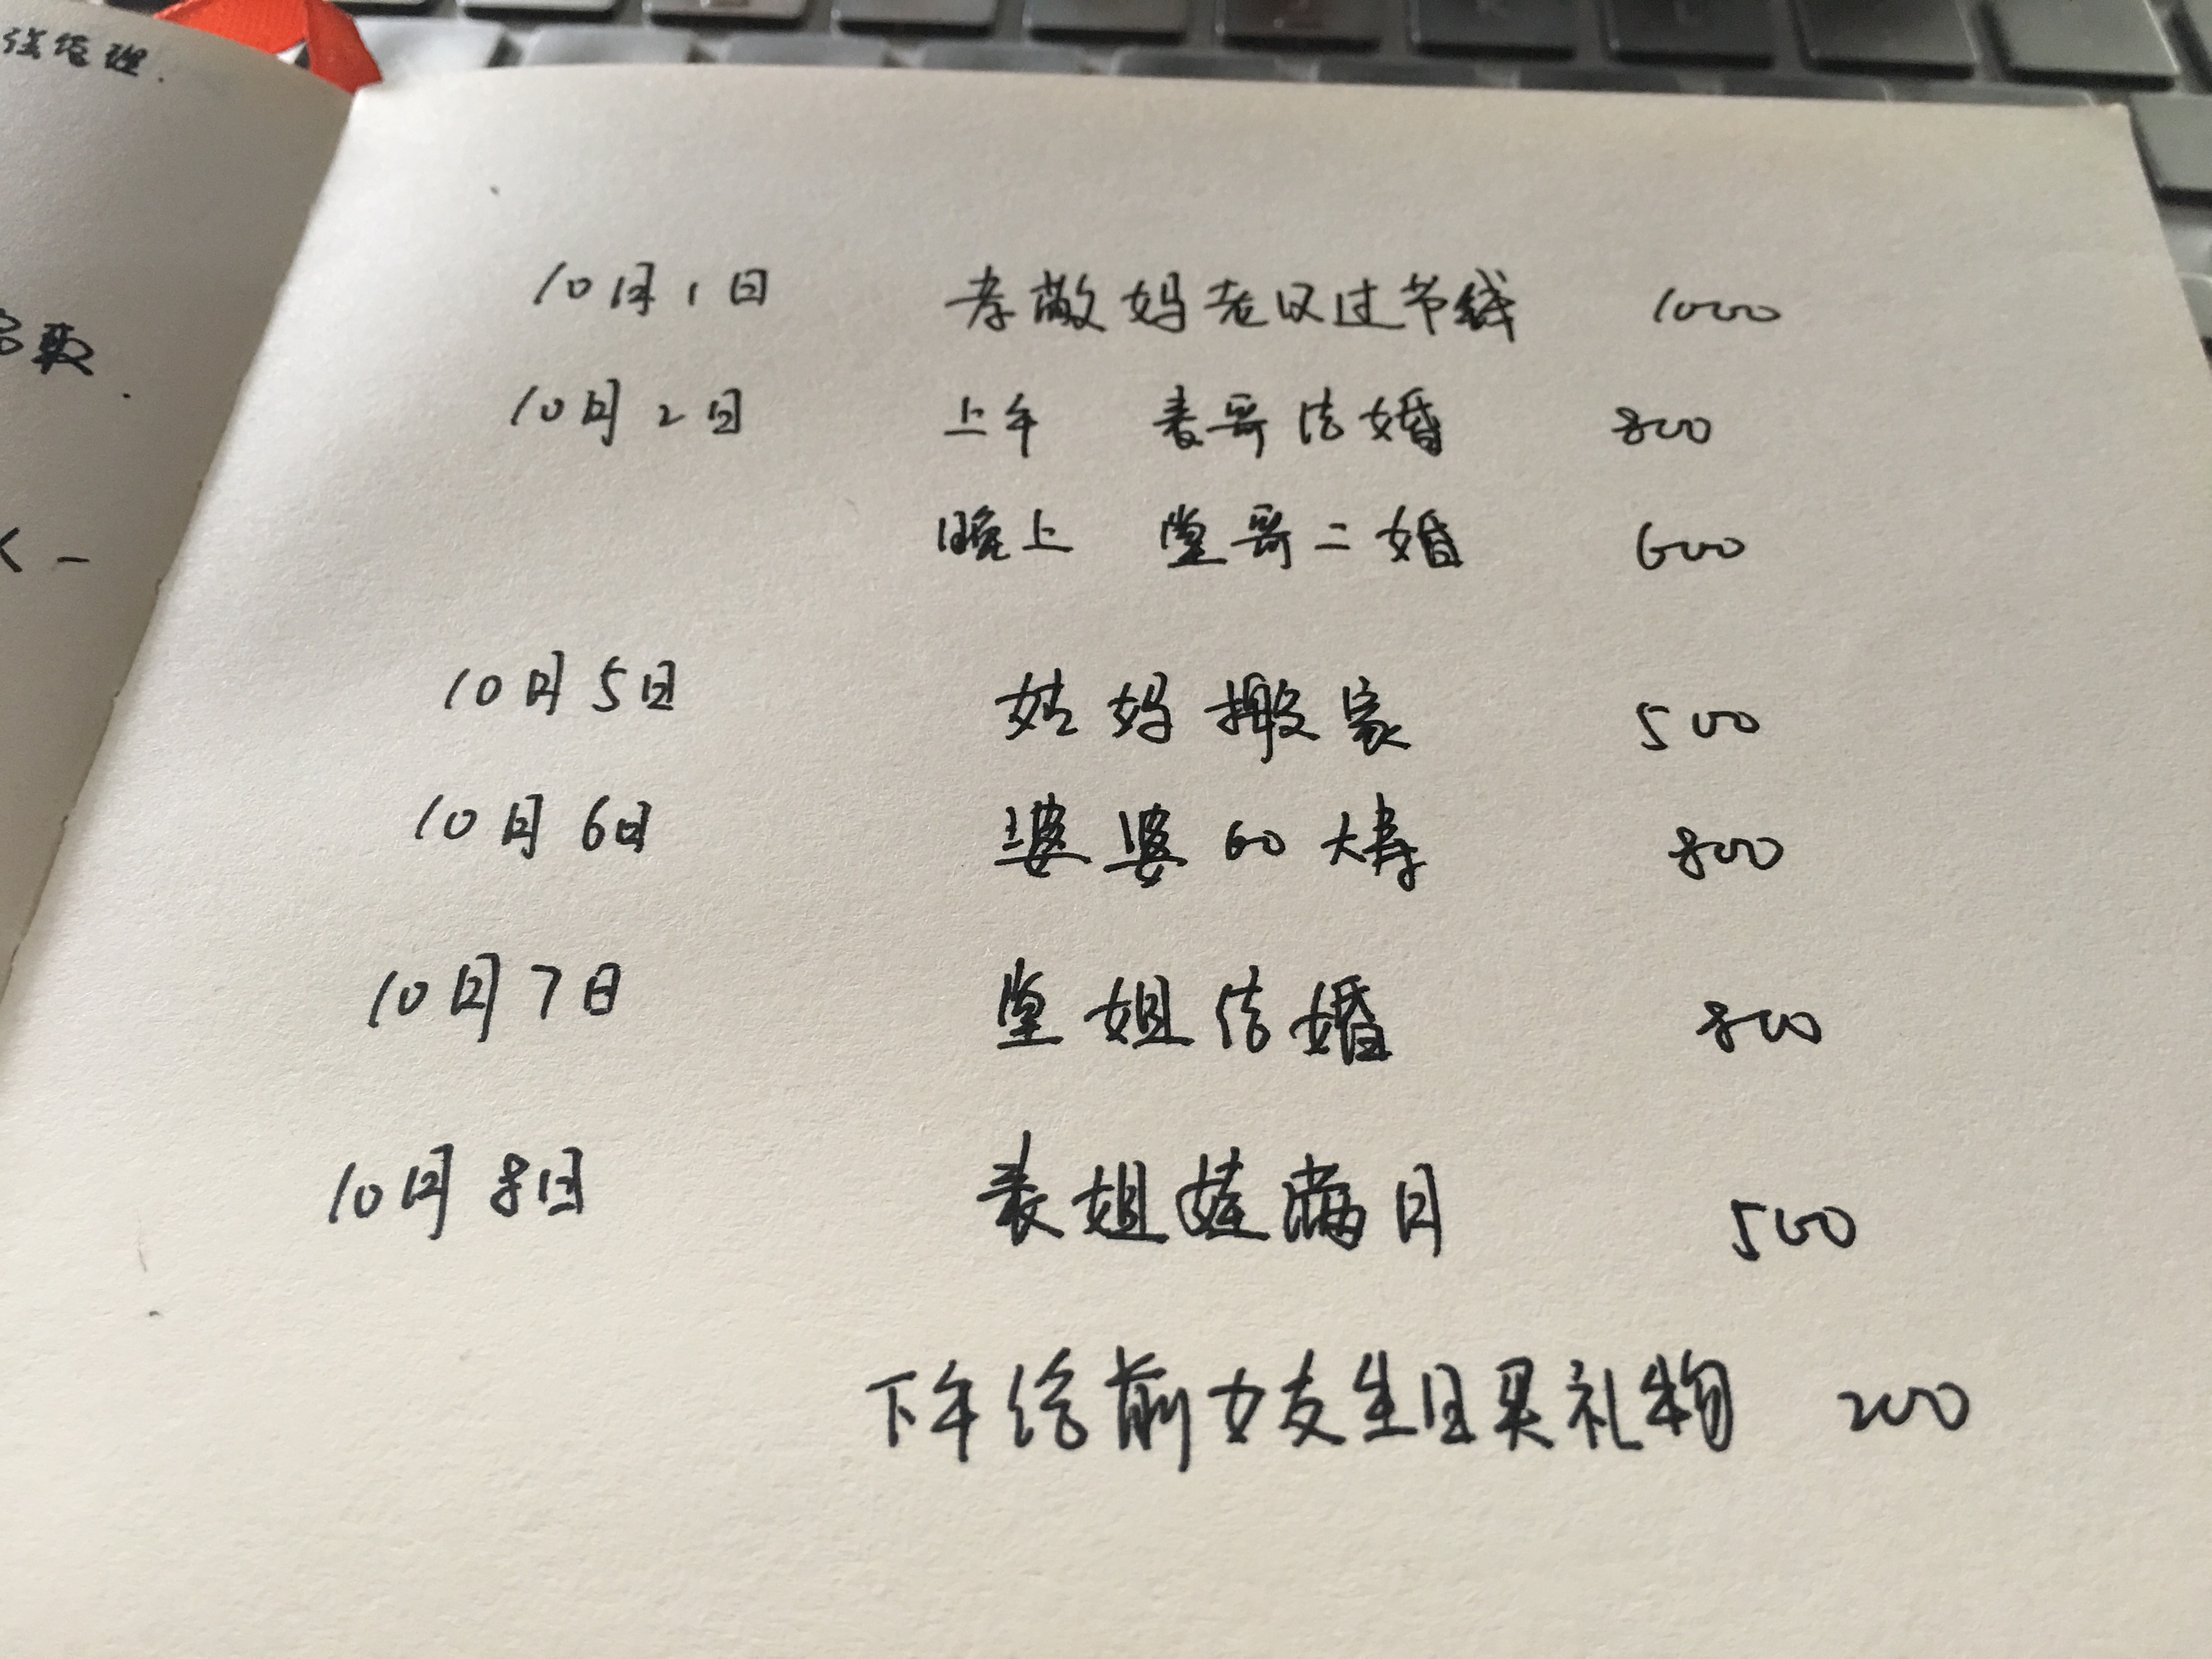 张经理.
10月1日 孝敬妈老汉过节钱 1000
10月2日 上午 表哥结婚 800
晚上 堂哥二婚 600
10月5日 姑妈搬家 500
10月6日 婆婆60大寿 800
10月7日 堂姐结婚 800
10月8日 表姐娃满月 500
下午给前女友生日买礼物 200